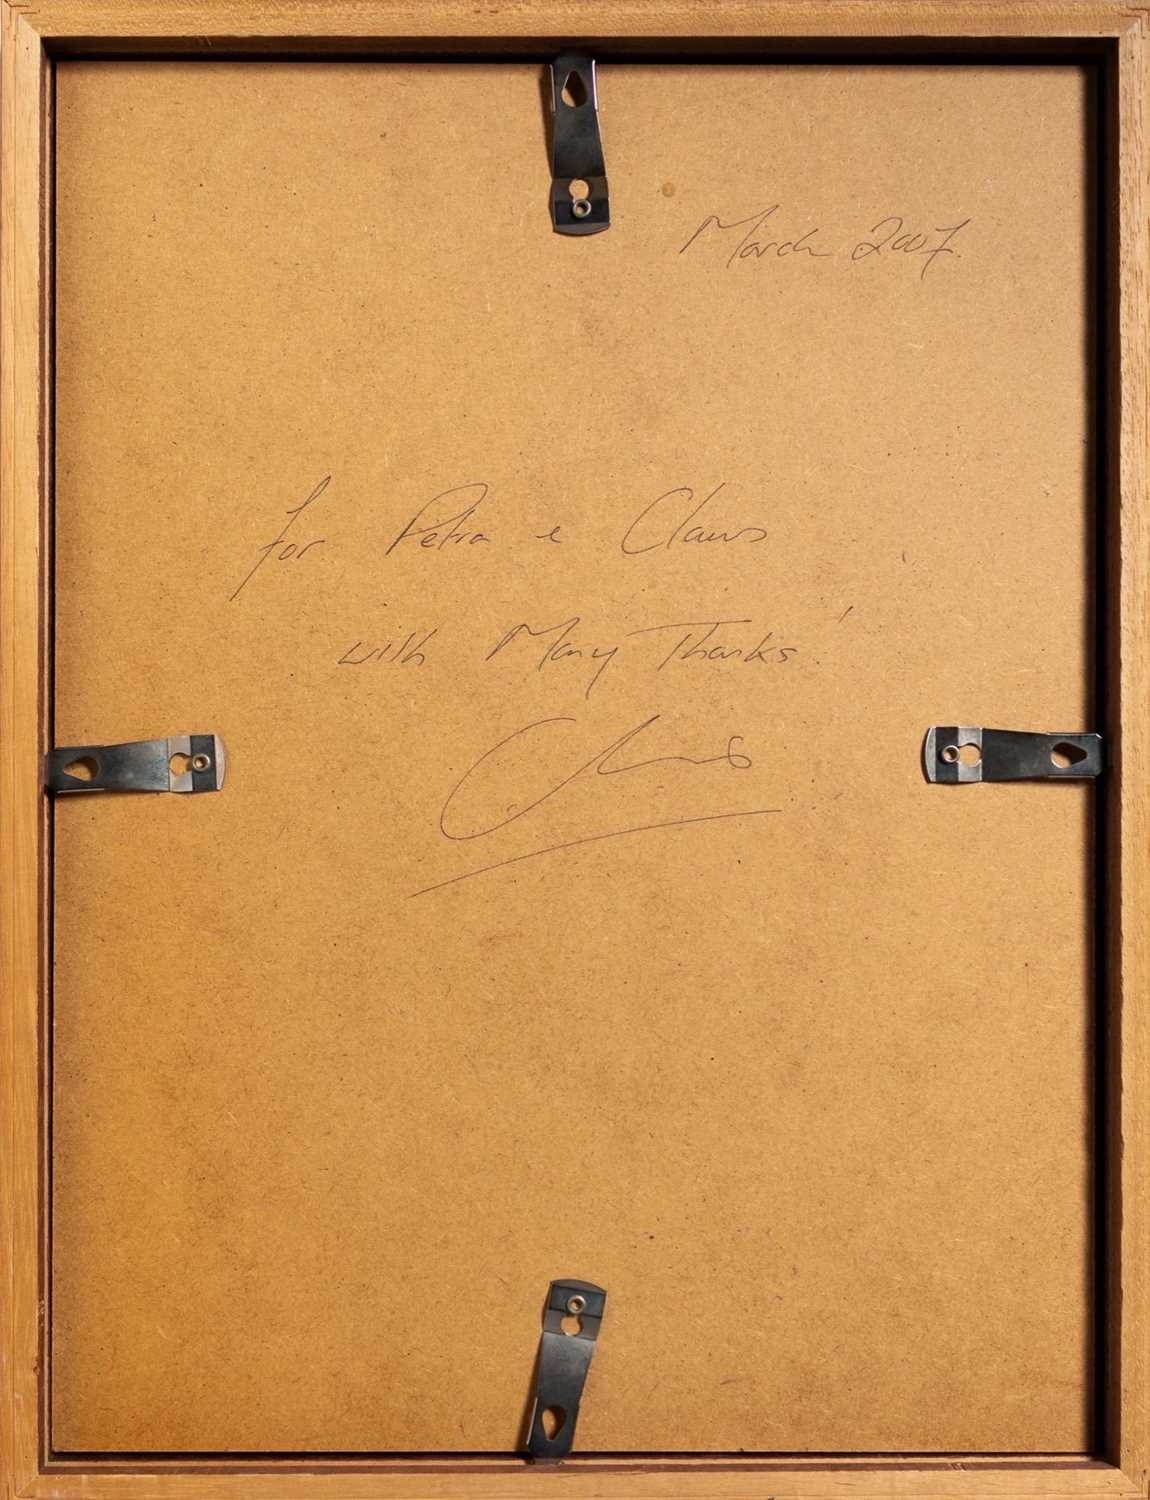 March 2007.
for Petra & Claus
with Many Thanks!
Chris